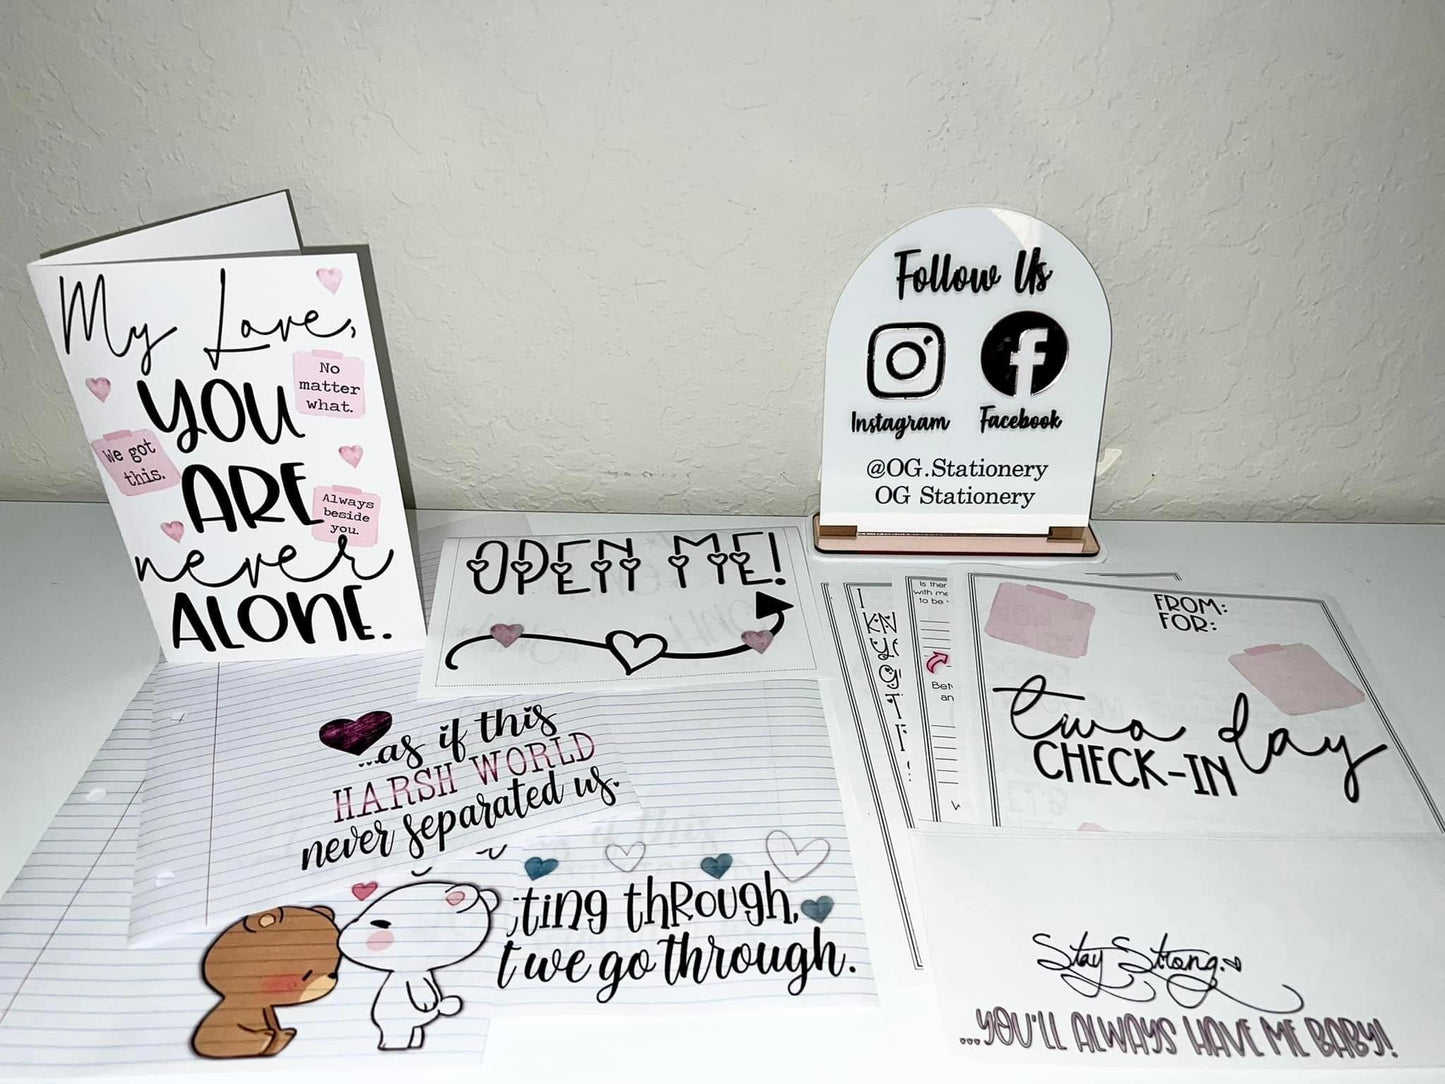 My Love,
YOU
ARE
never
ALONE.
No
matter
what.
We got
this.
Always
beside
you.
OPEN ME!
Follow Us
Instagram
Facebook
@OG.Stationery
OG Stationery
...as if this
HARSH WORLD
never separated us.
ting through,
t we go through.
I
KN
Is ther
with me
to be
Bet
an
FROM:
FOR:
two day
CHECK-IN
Stay Strong.
...YOU'LL ALWAYS HAVE ME BABY!